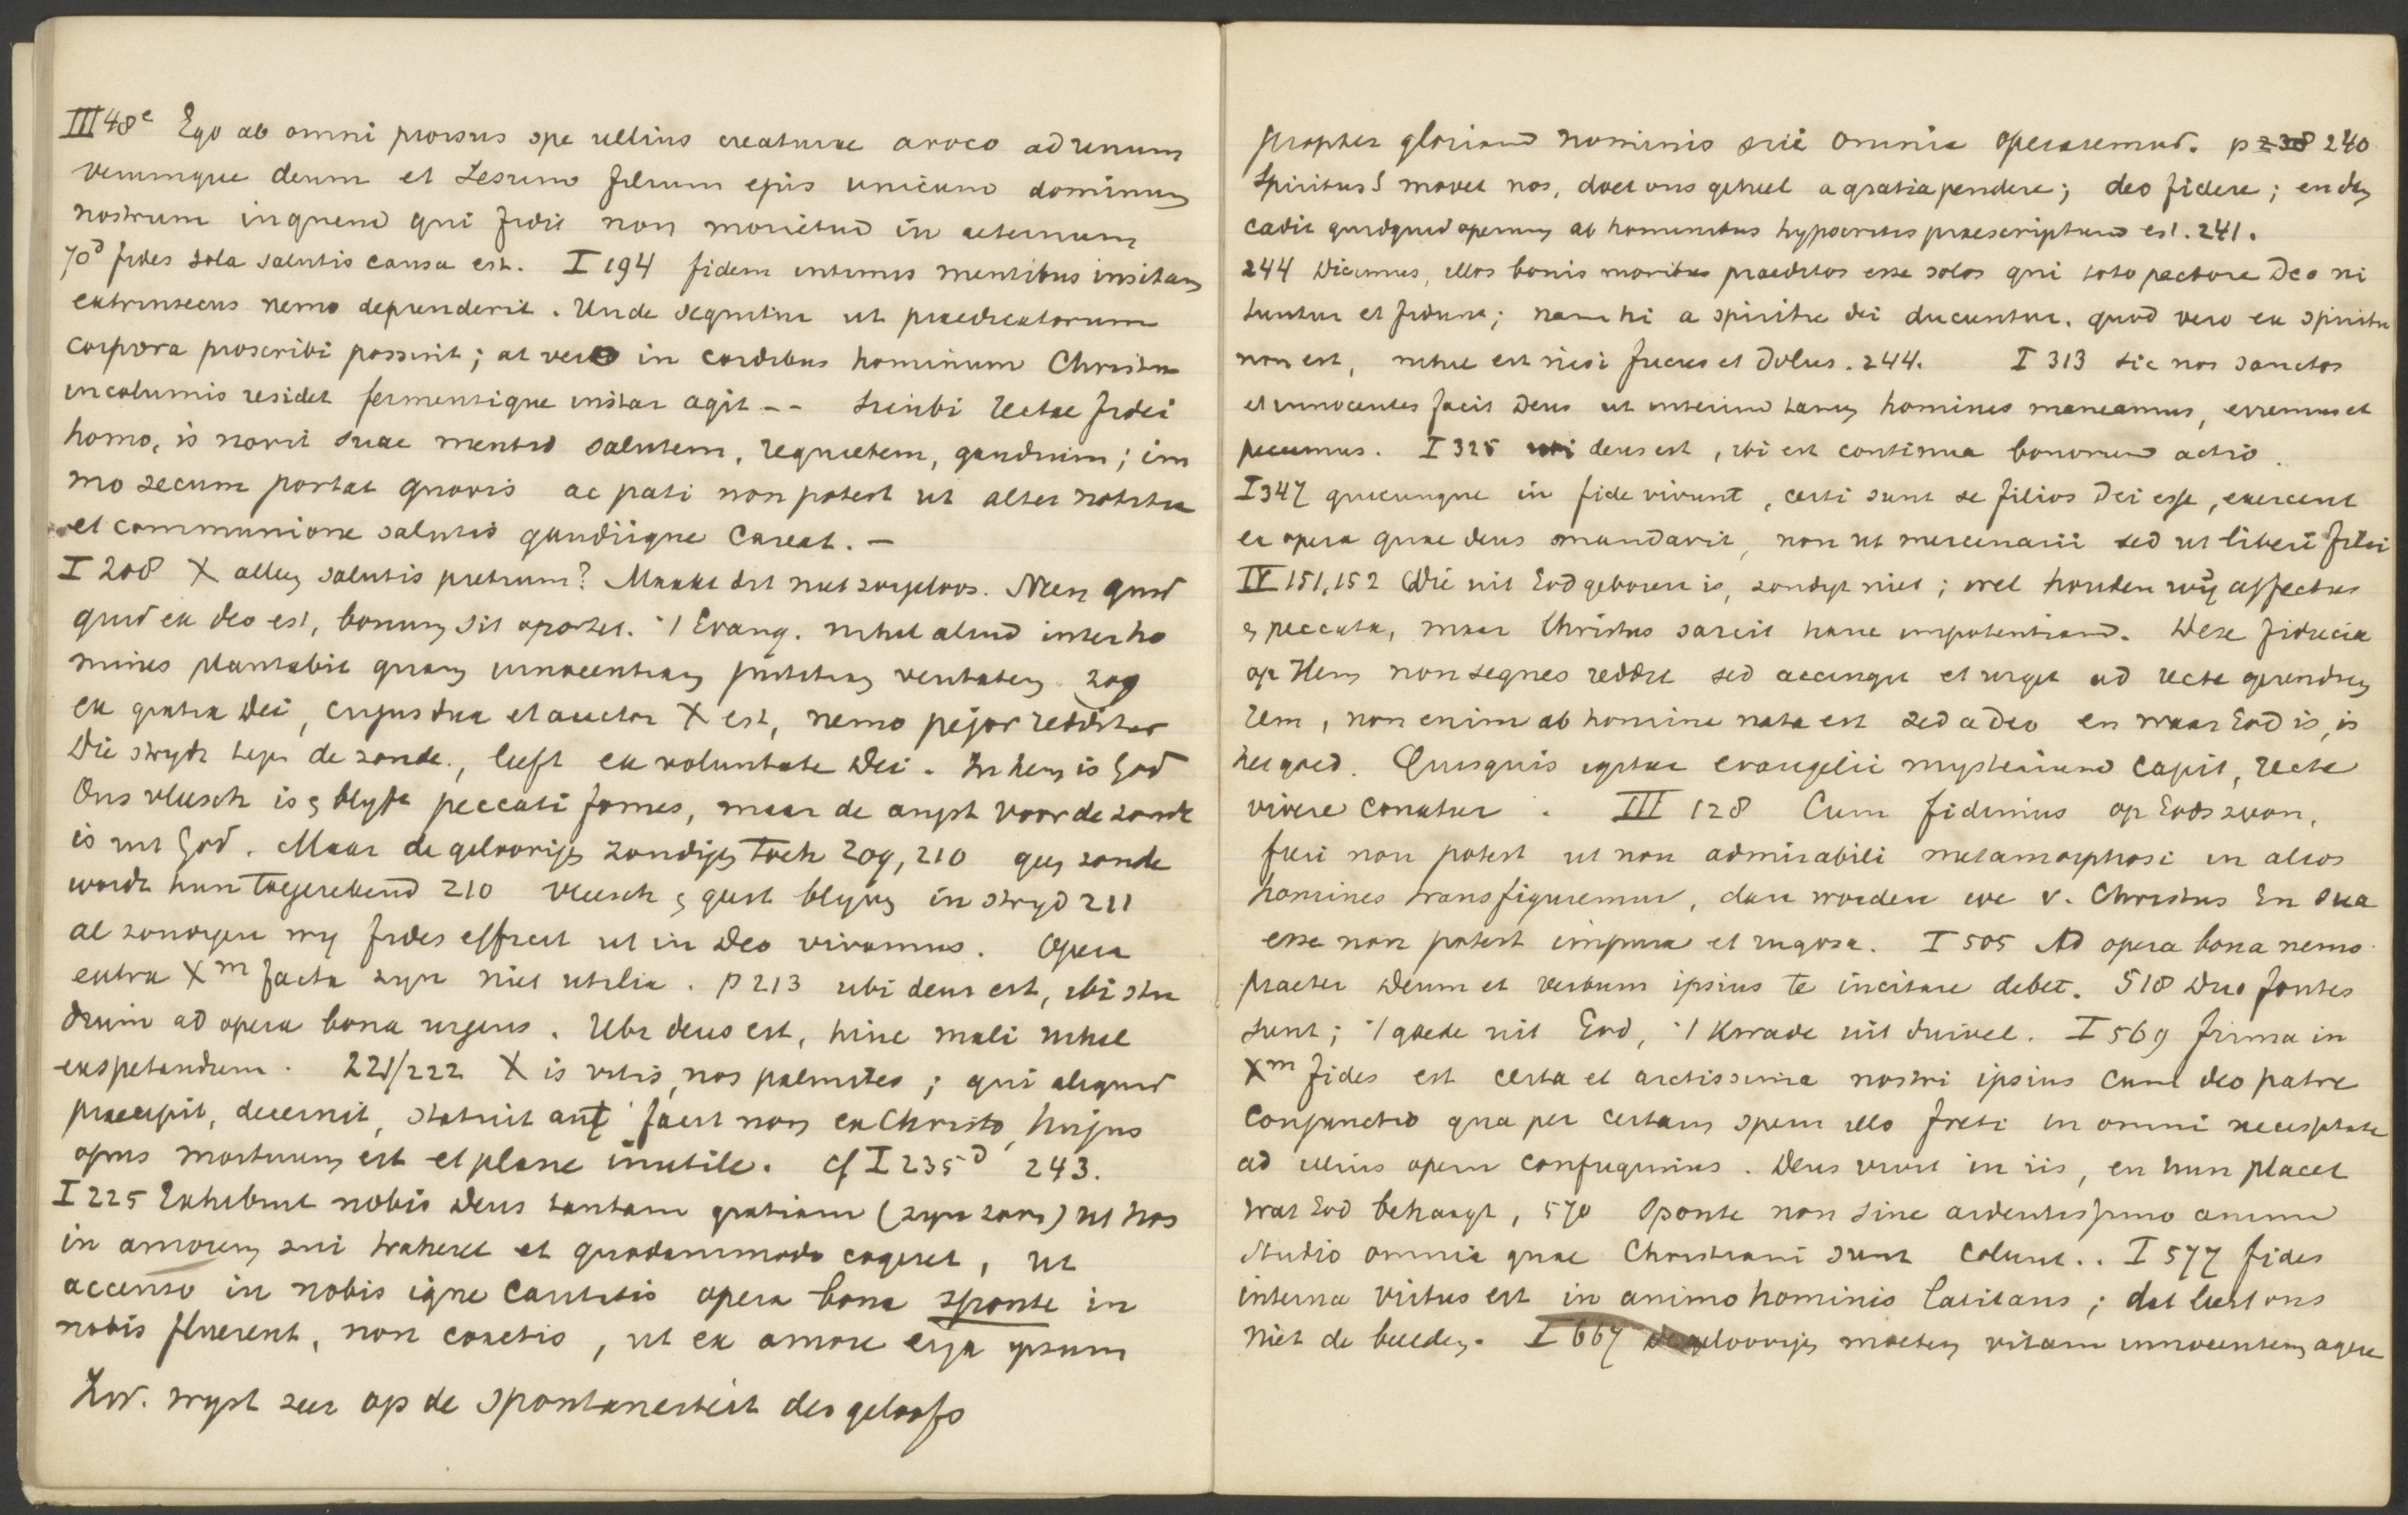 III 48e Ego ab omni prorsus spe ullius creaturae avoco ad unum
verumque deum et Jesum filium ejus unicum dominum
nostrum in quem qui fidit non morietur in aeternum
70d fides sola salutis causa est. I 194 fidem intimis mentibus insitam
extrinsecus nemo deprenderit. Unde sequitur ut praedicatorum
corpora proscribi possint; at vero in cordibus hominum Christus
incolumis residet fermentique instar agit -- Sicubi rectae fidei
homo, is novit suae mentis salutem, requietem, gaudium; im
mo secum portat quovis ac pati non potest ut alter notitia
et communione salutis gaudiique careat. -
I 208 X alleen salutis pretium? Maakt dit niet zorgeloos. Neen quid
quid ex deo est, bonum sit oportet. 't Evang. nihil aliud inter ho
mines plantabit quam innocentiam justitiam veritatem. 209
ex gratia Dei, cujus dux et auctor X est, nemo pejor redditur
Die strydt tegen de zonde, leeft ex voluntate Dei. In hem is God
Ons vleesch is en blyft peccati fomes, maar de angst voor de zonde
is uit God. Maar de geloovigen zondigen toch 209, 210 geen zonde
wordt hun toegerekend 210 vleesch en geest blyven in stryd 211
al zondigen wy fides efficit ut in Deo vivamus. Opera
extra Xm facta zyn niet utilia. p 213 ubi deus est, ibi stu
dium ad opera bona urgens. Ubi deus est, hinc mali nihil
exspetandum. 221/222 X is vitis, nos palmites; qui aliquid
praecipit, decernit, statuit aut facit non ex Christo, hujus
opus mortuum est et plane inutile. cf I 235d 243.
I 225 Exhibuit nobis Deus tantam gratiam (zyn zoon) ut nos
in amorem sui traheret et quodammodo cogeret, ut
accenso in nobis igne caritatis opera bona sponte in
nobis fluerent, non coactio, ut ex amore erga ipsum
Zw. wyst zeer op de spontaneiteit des geloofs
propter gloriam nominis sui omnia operaremur. p 238 240
Spiritus S movet nos, doet ons geheel a gratia pendere; deo fidere; en dan
cadit quidquid operum ab hominibus hypocritis praescriptum est. 241.
244 Dicimus, illos bonis moribus praeditos esse solos qui toto pectore Deo ni
tuntur et fidunt; nam hi a spiritu dei ducuntur. quod vero ex spiritu
non est, nihil est nisi fucus et dolus. 244. I 313 sic nos sanctos
et innocentes facit Deus ut interim tamen homines maneamus, erremus et
peccemus. I 325 ubi deus est, ibi est continua bonorum actio.
I 347 quicunque in fide vivunt, certi sunt se filios Dei esse, exercent
ea opera quae deus mandavit, non ut mercenarii sed ut liberi filii
IV 151, 152 Wie uit God geboren is, zondigt niet; wel houden wij affectus
en peccata, maar Christus sarcit hanc impotentiam. Deze fiducia
op Hem non segnes reddit sed accingit et urget ad recte gerendam
rem, non enim ab homine nata est sed a Deo en waar God is, is
het goed. Quisquis igitur evangelii mysterium capit, recte
vivere conatur. III 128 Cum fidimus op Gods zoon,
fieri non potest ut non admirabili metamorphosi in alios
homines transfiguremur, dan worden we v. Christus En sua
esse non potest impura et rugosa. I 505 Ad opera bona nemo
praeter Deum et verbum ipsius te incitare debet. 518 Duo fontes
sunt; 't goede uit God, 't kwade uit duivel. I 569 firma in
Xm fides est certa et arctissima nostri ipsius cum deo patre
conjunctio qua per certam spem illo freti in omni necessitate
ad illius opem confugimus. Deus vivit in iis, en hun placet
wat God behaagt, 570 Sponte non sine ardentissimo animi
studio omnia quae Christiani sunt colunt.. I 577 fides
interna virtus est in animo hominis latitans; dat leert ons
niet de beelden. I 667 De geloovigen moeten vitam innocentem agere